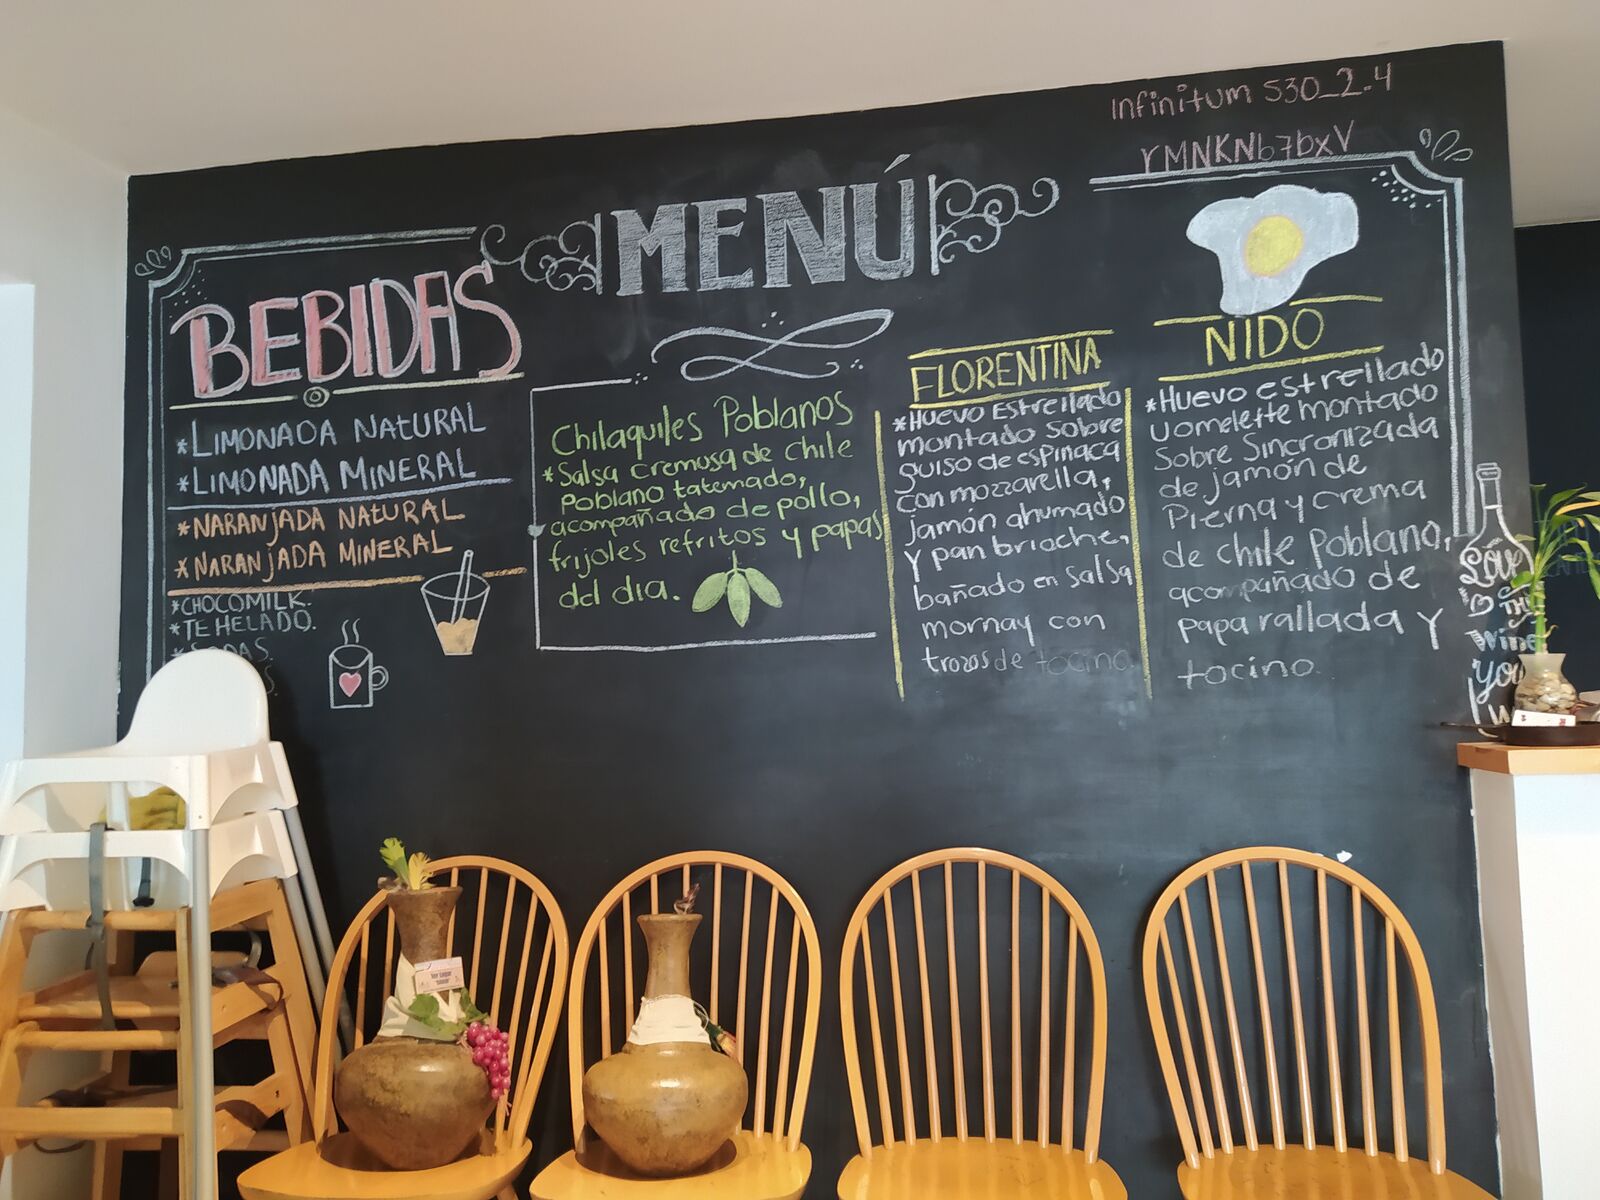 Infinitum S30_2.4
YMNKNb7bxV
MENÚ
BEBIDAS
*LIMONADA NATURAL
*LIMONADA MINERAL
*NARANJADA NATURAL
*NARANJADA MINERAL
*CHOCOMILK.
*TE HELADO.
*SODAS.
Chilaquiles Poblanos
*Salsa cremosa de chile
Poblano tatemado,
acompañado de pollo,
frijoles refritos y papas
del dia.
FLORENTINA
*HUEVO ESTRELLADO
montado sobre
guiso de espinaca
con mozzarella,
jamón ahumado
y pan brioche,
bañado en salsa
mornay con
trozos de tocino.
NIDO
*Huevo estrellado
u omelette montado
sobre Sincronizada
de jamón de
Pierna y crema
de chile Poblano,
acompañado de
papa rallada y
tocino.
THE
Wine
you